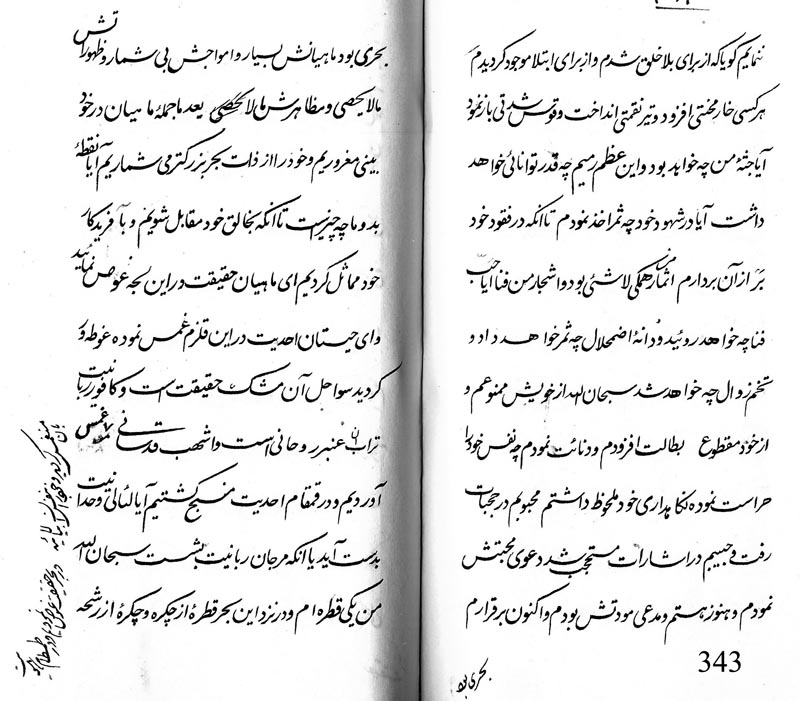 ننمایم گویا که از برای بلا خلق شدم و از برای ابتلا موجود گردیدم
هر کسی خار محنتی افزود و تیر نقمتی انداخت و قوس شدتی باز نمود
آیا جثهٔ من چه خواهد بود و این عظم رمیم چه قدر توانائی خواهد
داشت آیا در شهود خود چه ثمر اخذ نمودم تا انکه در فقود خود
بر از آن بردارم اثمار من همگی لاشئی بود و اشجار من فنا آیا حب
فنا چه خواهد روئید و دانهٔ اضمحلال چه ثمر خواهد داد و
تخم زوال چه خواهد شد سبحان الله از خویش ممنوعم و
از خود مقطوع بطالت افزودم و دنائت نمودم چه نفس خود را
حراست نموده نگاهداری خود ملحوظ داشتم محبوبم در حجبات
رفت و حبیبم در اشارات مستحجب شد دعوی محبتش
نمودم و هنوز هستم و مدعی مودتش بودم و اکنون برقرارم
بحری بود
343
بحری بود ماهیانش بسیار و امواجش بی شمار و ظهوراتش
مالا یحصی و مظاهرش مالا یحصی بعد ما جملهٔ ماهیان در خود
بینی مغروریم و خود را از ذات بحر بزرگتر می شماریم آیا نقطهٔ
بدو ما چه چیز است تا انکه بخالق خود مقابل شویم و با آفریدکار
خود مماثل گردیم ای ماهیان حقیقت در این لجه غوص نمائید
و ای حیتان احدیت در این قلزم غمس نموده غوطه ور
گردید سواحل آن مشک حقیقت است و کافور ربانیت
تراب آن عنبر روحانی است و اشهب قدسانی غمس نمتعه
آوردیم و در قمقام احدیت منسبح گشتیم آیا لئالی وحدانیت
بدست آید یا انکه مرجان ربانیت بشست سبحان الله
من یکی قطره ام و در نزد این بحر قطرهٔ از چکره و چکرهٔ از رشحه